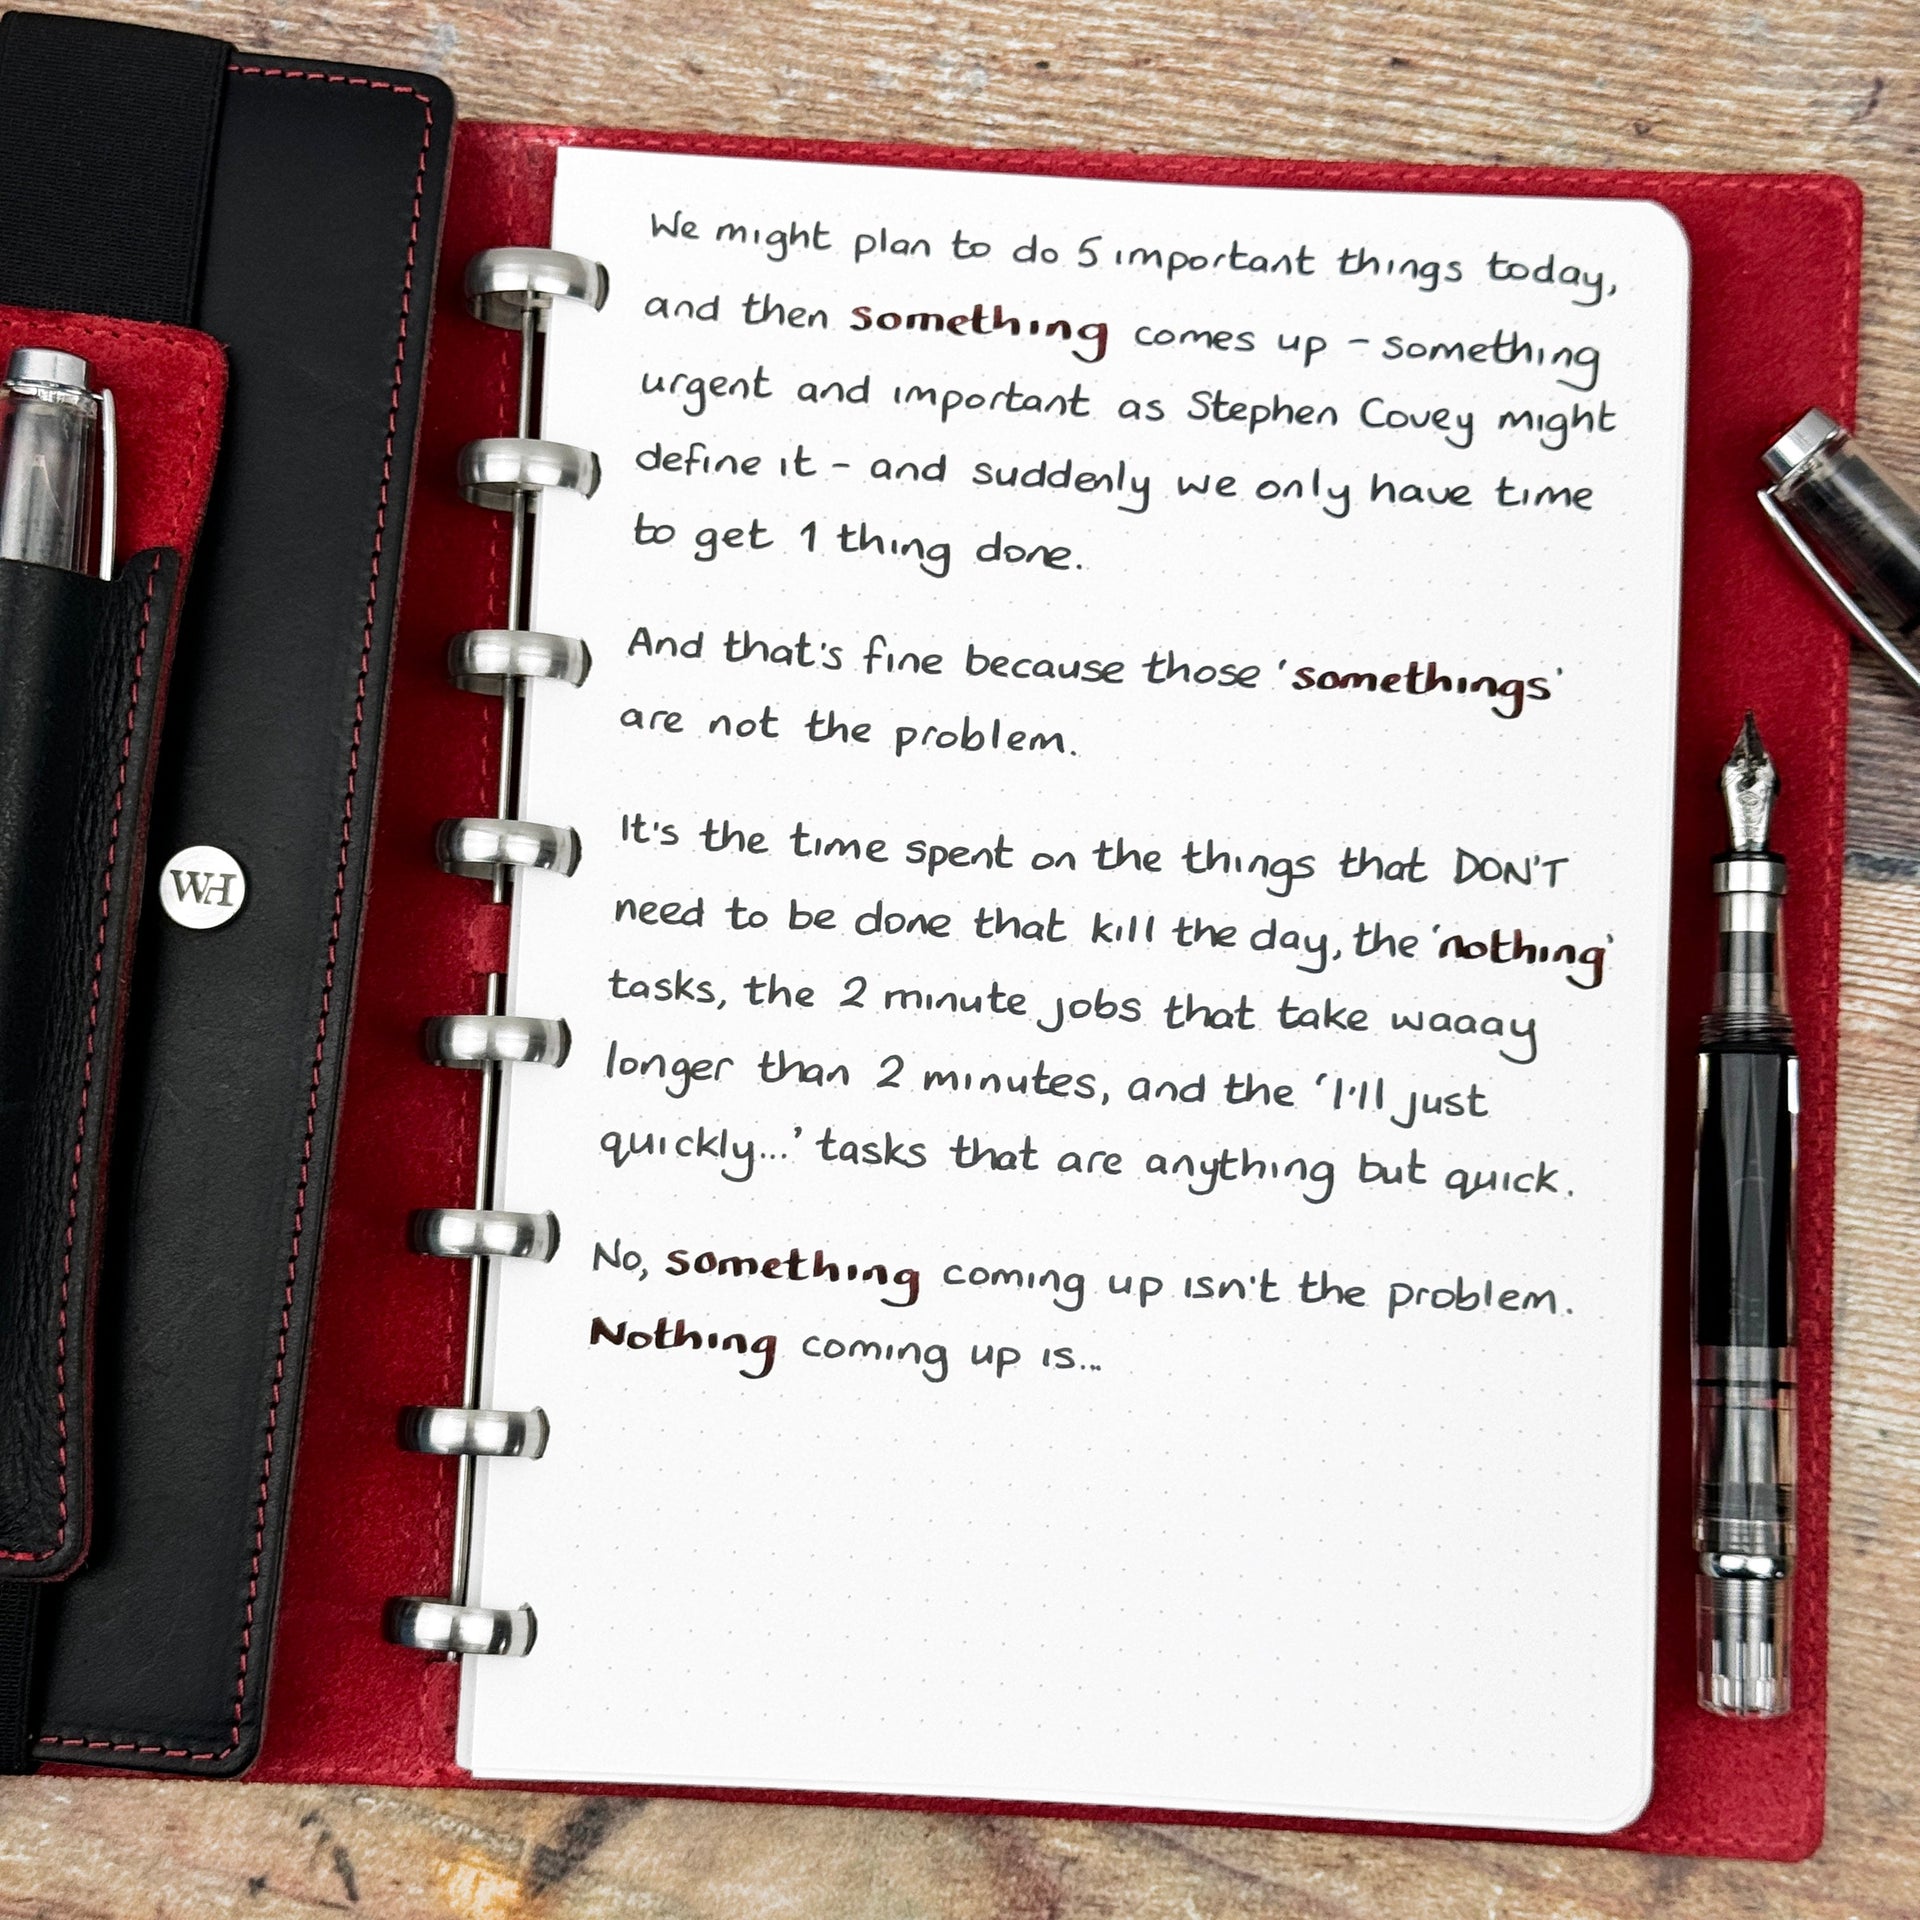 WH
We might plan to do 5 important things today,
and then something comes up - something
urgent and important as Stephen Covey might
define it - and suddenly we only have time
to get 1 thing done.
And that's fine because those 'somethings'
are not the problem.
It's the time spent on the things that DON'T
need to be done that kill the day, the 'nothing'
tasks, the 2 minute jobs that take waaay
longer than 2 minutes, and the 'I'll just
quickly...' tasks that are anything but quick.
No, something coming up isn't the problem.
Nothing coming up is...